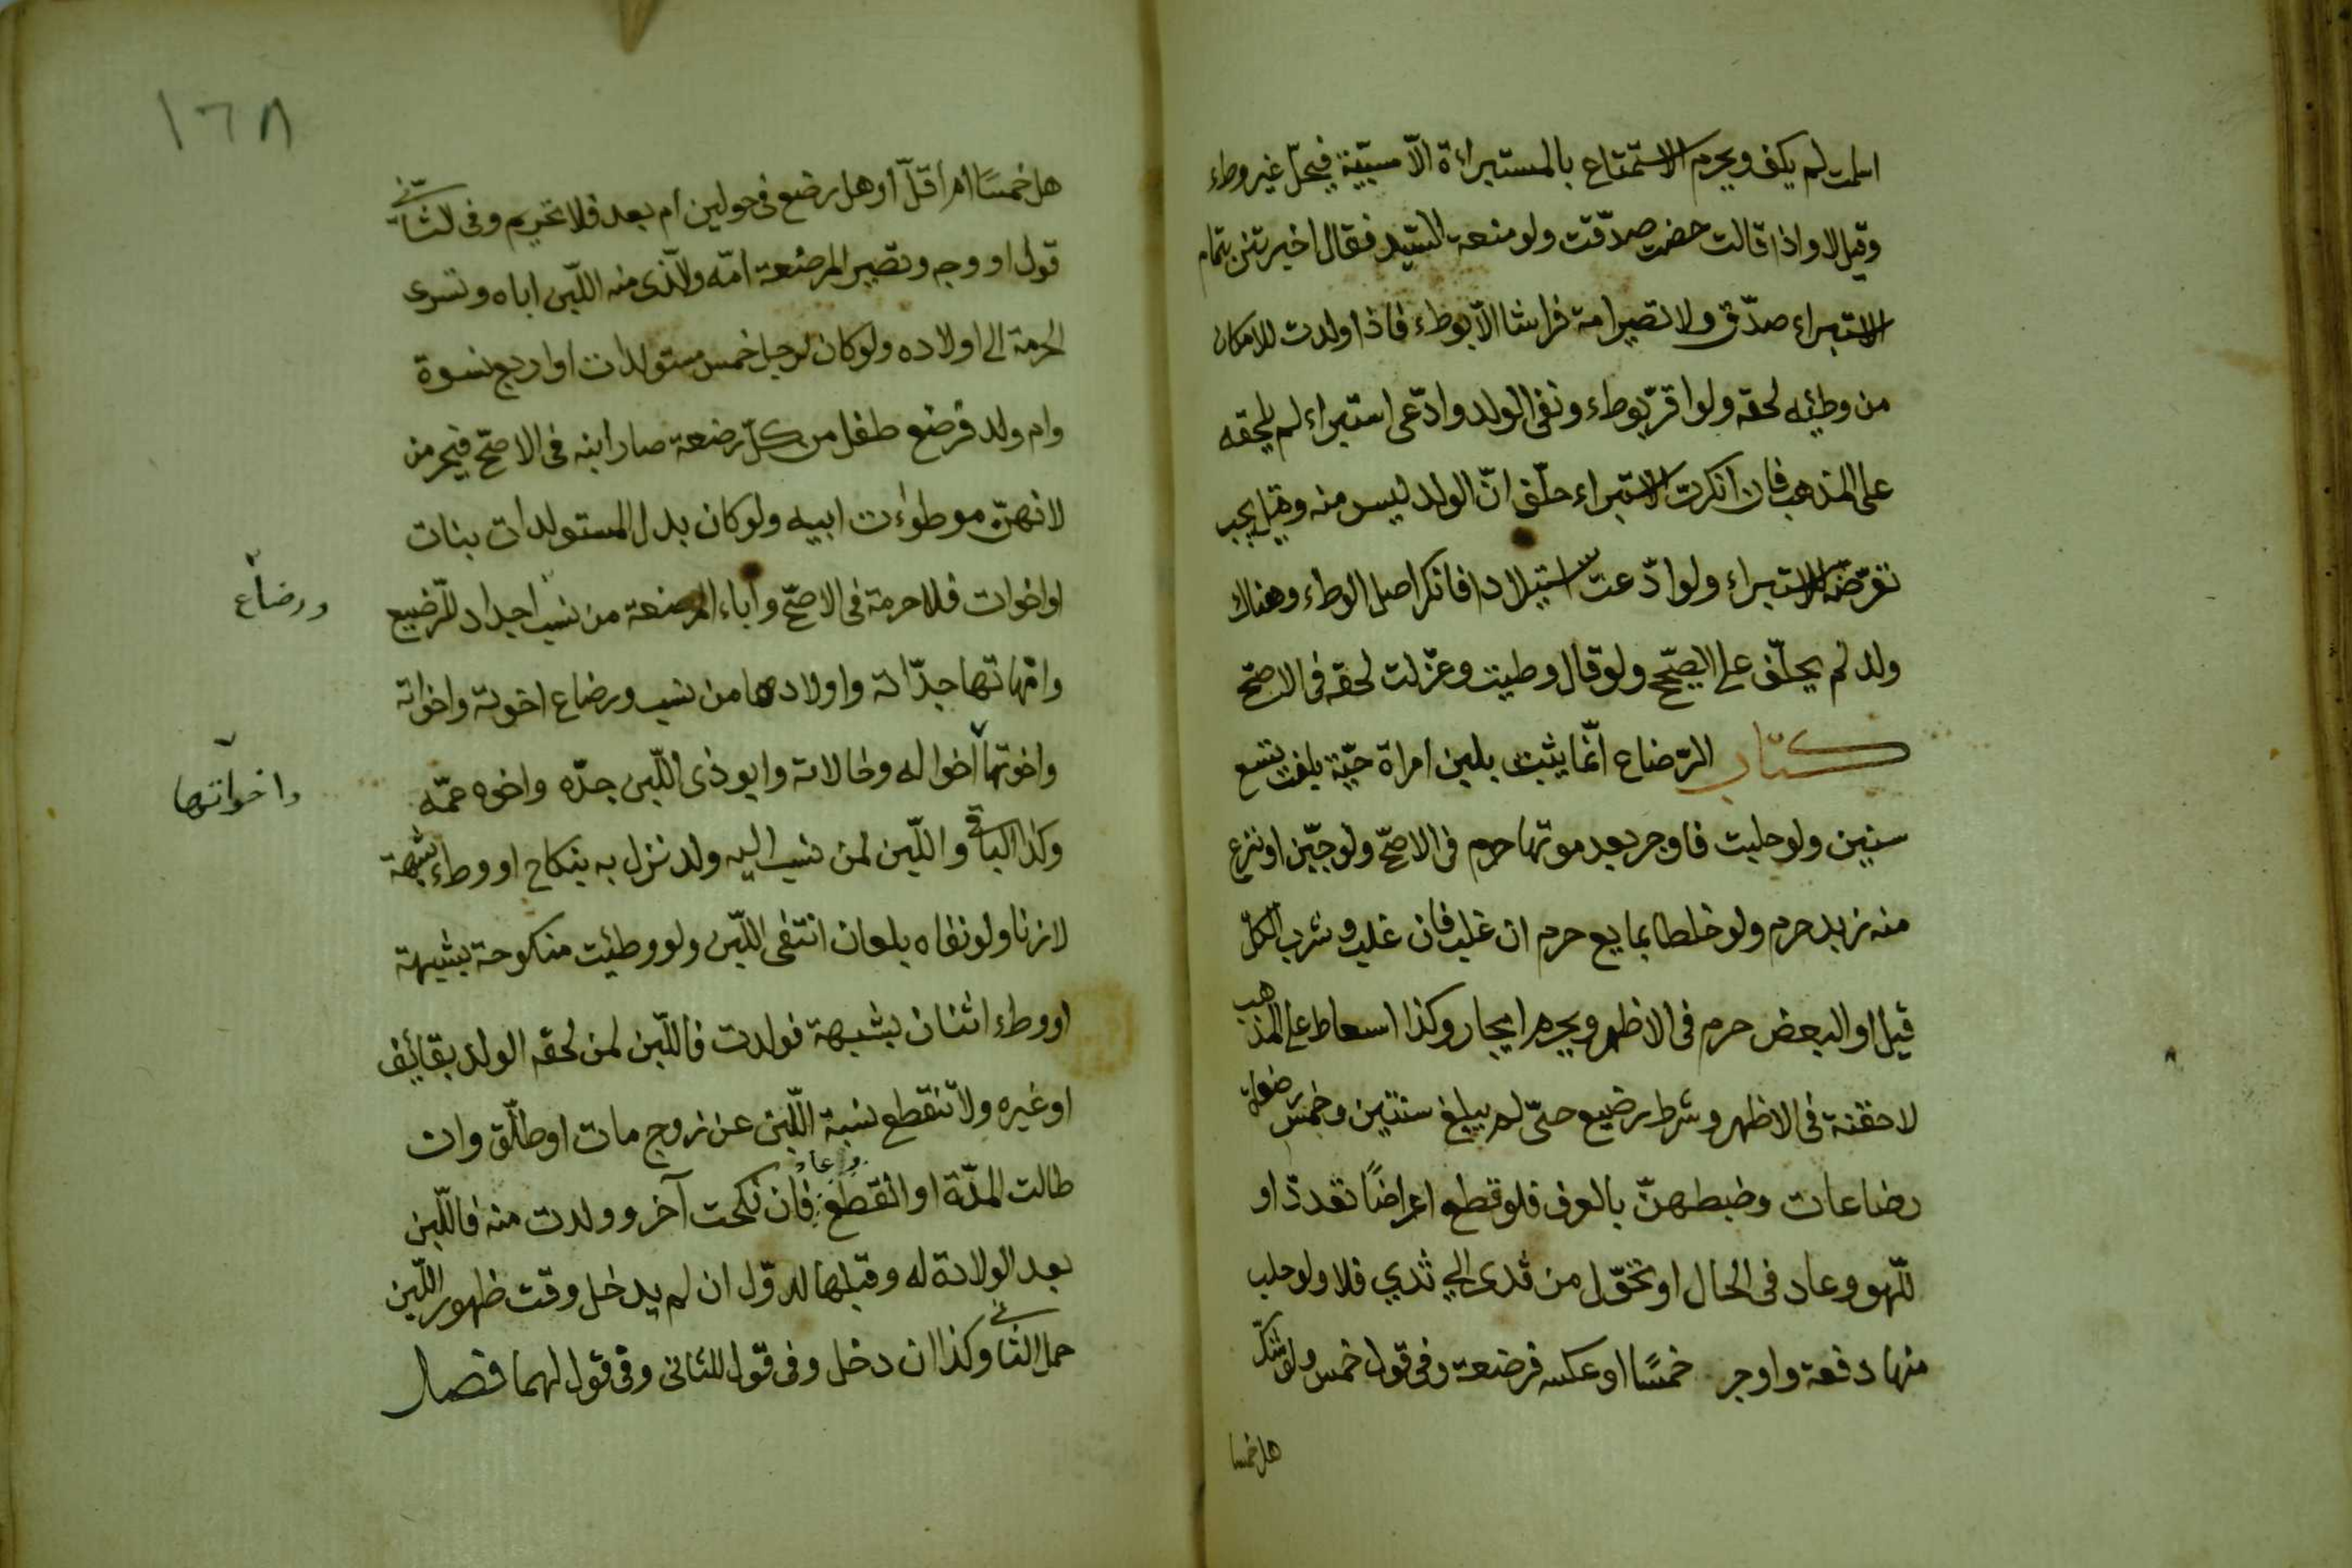 اسلمت لم يكف ويحرم الاستمتاع بالمستبراءة الّا مسبّية فيحلّ غير وطء
وقيل لا واذا قالت حضت صدّقت ولو منعت السّيد فقال اخبرتني بتمام
الاستبراء صدّق ولا تصير امة فراشا الّا بوطء فاذا ولدت للامكان
من وطئه لحقه ولو اقرّ بوطء ونفى الولد وادّعى استبراء لم يلحقه
على المذهب فان انكرت الاستبراء حلّف انّ الولد ليس منه وقيل يجب
تعرّضه للاستبراء ولو ادّعت استيلادا فانكر اصل الوطء وهناك
ولد لم يحلّف على الصّحيح ولو قال وطيت وعزلت لحقه فى الاصحّ
كتاب الرّضاع انّما يثبت بلبن امراة حيّة بلغت تسع
سنين ولو حلبت فاوجر بعد موتها حرم فى الاصحّ ولو جبّن او نزع
منه زبد حرم ولو خلطا بمايع حرم ان غلب فان غلب وشرب الكلّ
قيل او البعض حرم فى الاظهر ويحرم ايجار وكذا اسعاط على المذهب
لا حقنة فى الاظهر وشرط رضيع حىّ لم يبلغ سنتين وخمس رضعات
رضاعات وضبطهنّ بالعرف فلو قطع اعراضًا تعدد او
للّهو وعاد فى الحال او تحوّل من ثدى الى ثدي فلا ولو حلب
منها دفعة واوجر خمسًا او عكسه فرضعة وفى قول خمس ولو شكّ
هل خمسا
١٦٨
هل خمسًا ام اقلّ او هل رضع فى حولين ام بعد فلا تحريم وفى الثانى
قول او وجه وتصير المرضعة امّه والّذى منه اللّبن اباه وتسرى
الحرمة الى اولاده ولو كان لرجل خمس مستولدات او اربع نسوة
وام ولد فرضع طفل من كلّ رضعة صار ابنه فى الاصحّ فيحرمن
لانهنّ موطوٰءت ابيه ولو كان بدل المستولدات بنات
او اخوات فلا حرمة فى الاصحّ وآباء المرضعة من نسب اجداد للّرضيع
ورضاع
وامّهاتها جدّاته واولادها من نسب ورضاع اخوته واخواته
واخوتها اخواله وخالاته وابو ذى اللّبن جدّه واخوه عمّه
واخواتها
وكذا الباقى واللّبن لمن نسب اليه ولد نزل به بنكاح او وطء شبهة
لا زنا ولو نفاه بلعان انتفى اللّبن ولو وطئت منكوحة بشبهة
او وطء اثنان بشبهة فولدت فاللّبن لمن لحقه الولد بقايف
او غيره ولا تنقطع نسبة اللّبن عن زوج مات او طلّق وان
طالت المدّة او انقطع وعاد فان نكحت آخر وولدت منه فاللّبن
بعد الولادة له وقبلها للاوّل ان لم يدخل وقت ظهور اللّبن
حمل الثانى وكذا ان دخل وفى قول للثانى وفى قول لهما فصل